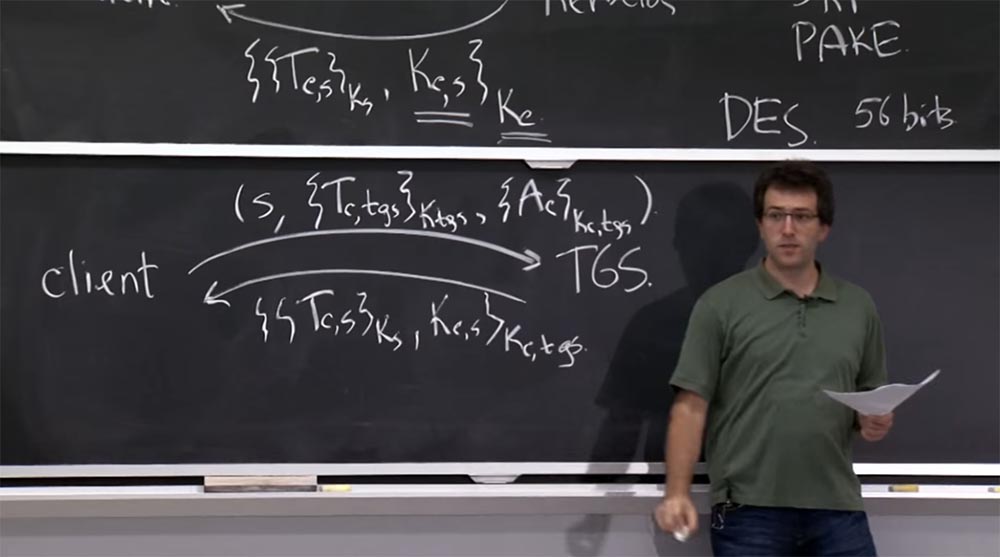 PAKE.
{{T_{c,s}}_{K_s}, K_{c,s}}_{K_c}
DES. 56 bits
(s, {T_{c,tgs}}_{K_{tgs}}, {A_c}_{K_{c,tgs}}).
client
TGS.
{{T_{c,s}}_{K_s}, K_{c,s}}_{K_{c,tgs}}.